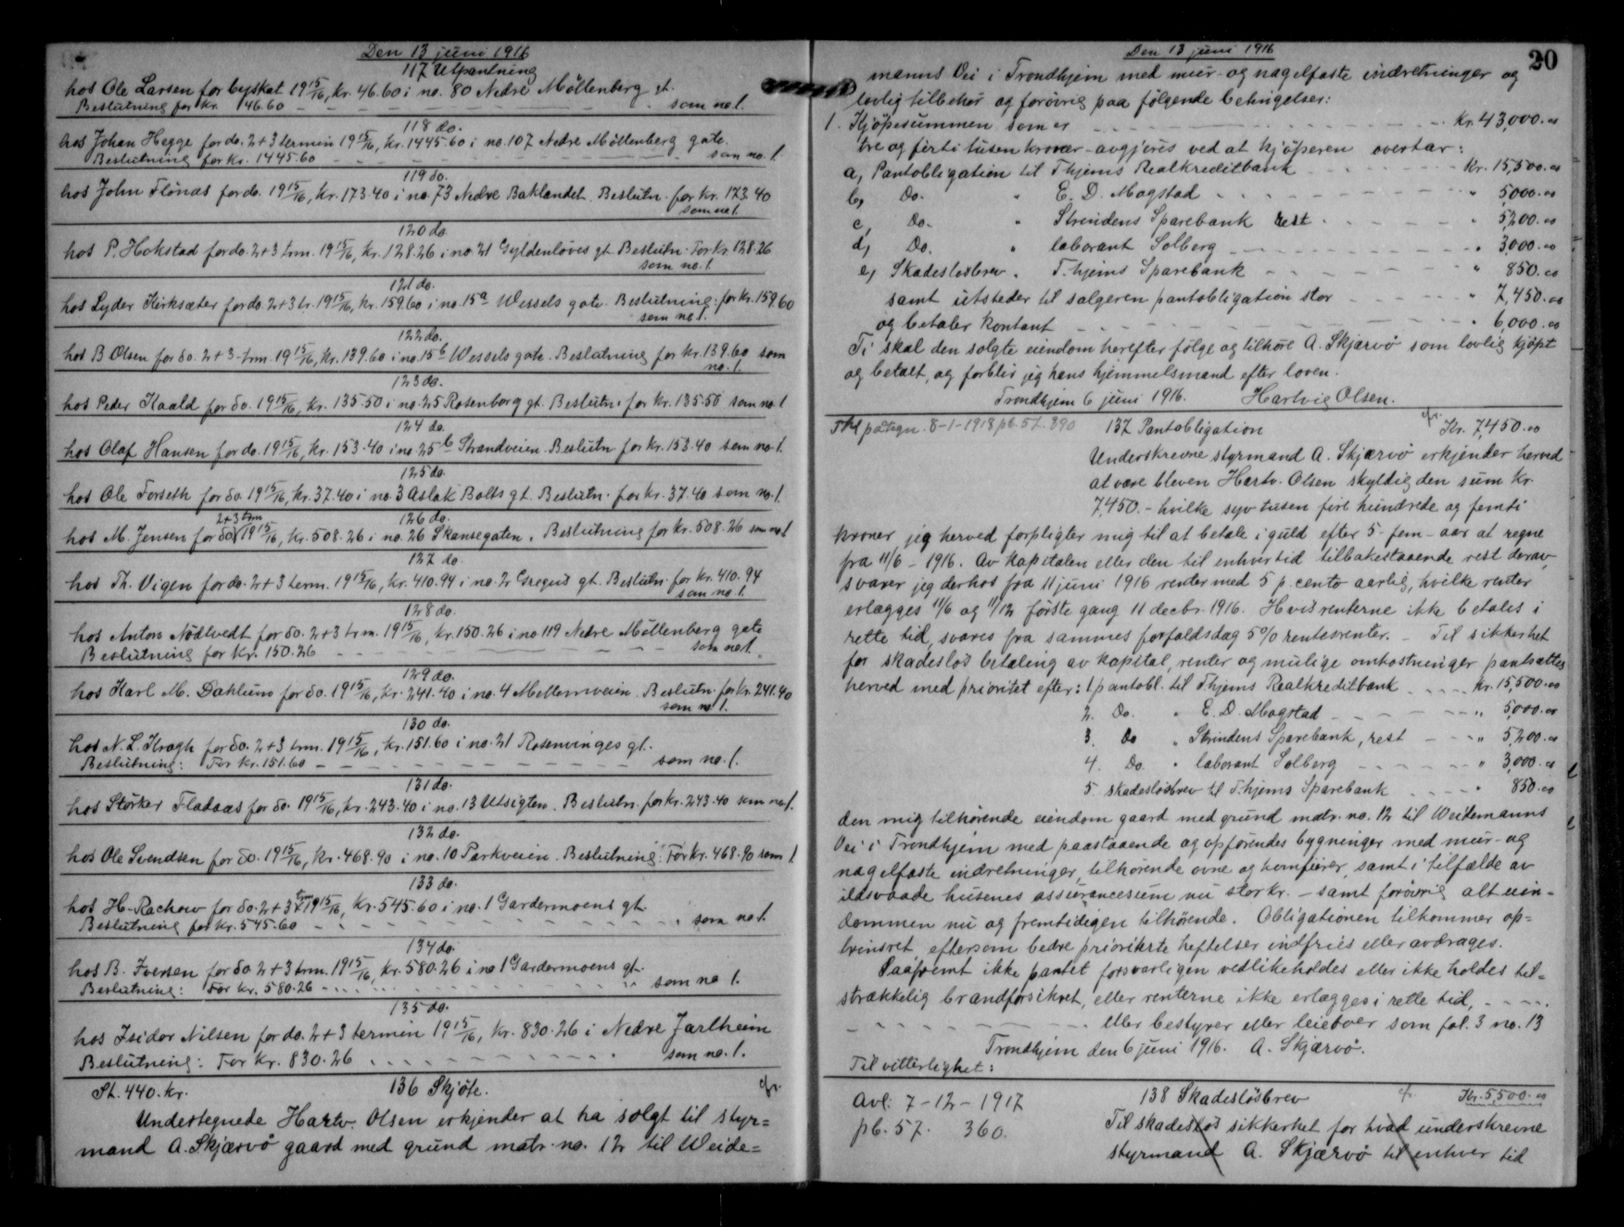 Den 13 juni 1916
117 Utpantning
hos Ole Larsen for byskat 19 15/16, kr. 46.60 i no. 80 Nedre Möllenberg gt.
Beslutning for kr. 46.60 som no 1.
118 do.
hos Johan Hegge for do. 2+3 termin 19 15/16, kr. 1445.60 i no. 107 Nedre Möllenberg gate.
Beslutning for kr. 1445.60 som no. 1
119 do.
hos John Flönas for do. 19 15/16, kr. 173.40 i no. 73 Nedre Baklandet. Beslutn. for kr. 173.40
som no 1.
120 do.
hos P. Hokstad for do. 2+3 trm. 19 15/16, kr. 128.26 i no. 21 Gyldenlöves gt. Beslutn. For kr. 128.26
som no. 1.
121 do.
hos Lyder Kirksæter for do. 2+3 tr. 19 15/16, kr. 159.60 i no. 15a Wessels gate. Beslutning: for kr. 159.60
som no 1.
122 do.
hos B. Olsen for do. 2+3-trm. 19 15/16, kr. 139.60 i no. 15b Wessels gate. Beslutning for kr. 139.60 som
no. 1.
123 do.
hos Peder Kaald for do. 19 15/16, kr. 135.50 i no. 25 Rosenborg gt. Beslutn. for kr. 135.50 som no. 1
124 do.
hos Olaf Hansen for do. 19 15/16, kr. 153.40 i no. 25b Strandveien. Beslutn for kr. 153.40 som no. 1.
125 do.
hos Ole Forseth for do. 19 15/16, kr. 37.40 i no. 3 Aslak Bolts gt. Beslutn. for kr. 37.40 som no. 1.
2+3 trm 126 do.
hos M. Jensen for do. 19 15/16, kr. 508.26 i no. 26 Skansegaten. Beslutning for kr. 508.26 som no 1
127 do.
hos Th. Vigen for do. 2+3 term. 19 15/16, kr. 410.94 i no. 2 Gregus gt. Beslutn. for kr. 410.94
som no. 1.
128 do.
hos Anton Nödtvedt for do. 2+3 trm. 19 15/16, kr. 150.26 i no 119 Nedre Möllenberg gate
Beslutning for kr. 150.26 som no 1.
129 do.
hos Karl M. Dahlum for do. 19 15/16, kr. 241.40 i no. 4 Mellemveien. Beslutn. for kr. 241.40
som no 1.
130 do.
hos N. L. Krogh for do. 2+3 trm. 19 15/16, kr. 151.60 i no. 21 Rosenvinges gt.
Beslutning: For kr. 151.60 som no. 1.
131 do.
hos Störker Fladaas for do. 19 15/16, kr. 243.40 i no. 13 Utsigten. Beslutn. for kr. 243.40 som no 1.
132 do.
hos Ole Svendsen for do. 19 15/16, kr. 468.90 i no. 10 Parkveien. Beslutning: For kr. 468.90 som 1
133 do.
hos H. Rachow for do. 2+3 trm 19 15/16, kr. 545.60 i no. 1 Gardermoens gt.
Beslutning for kr. 545.60 som no 1.
134 do.
hos B. Iversen for do 2+3 trm. 19 15/16, kr. 580.26 i no 1 Gardermoens gt.
Beslutning: For kr. 580.26 som no 1.
135 do.
hos Isidor Nilsen for do. 2+3 termin 19 15/16, kr. 830.26 i Nedre Jarlheim
Beslutning: For kr. 830.26 som no. 1.
St. 440. kr. 136 Skjöte.
Undertegnede Hartv. Olsen erkjender at ha solgt til styr=
mand A. Skjærvö gaard med grund matr. no. 12 til Weide=
Den 13 juni 1916
20
manns Vei i Trondhjem med mur- og nagelfaste indretninger og
lovlig tilbehör og forövrig paa fölgende betingelser:
1. Kjöpesummen som er kr. 43,000.00
tre og firti tusen kroner - avgjöres ved at kjöperen overtar:
a, Pantobligation til T.hjems Realkreditbank kr. 15,500.00
b, Do. " E. D. Magstad " 5,000.00
c, Do. " Strindens Sparebank rest " 5,200.00
d, Do. " laborant Solberg " 3,000.00
e, Skadeslösbrev " T.hjems Sparebank " 850.00
samt utsteder til sælgeren pantobligation stor " 7,450.00
og betaler kontant " 6,000.00
Ti skal den solgte eiendom herefter fölge og tilhöre A. Skjærvö som lovlig kjöpt
og betalt, og forblir jeg hans hjemmelsmand efter loven.
Trondhjem 6 juni 1916. Hartvig Olsen.
Tkl paategn. 8-1-1918 pb. 57. 390 137 Pantobligation Kr. 7,450.00
Underskrevne styrmand A. Skjærvö erkjender herved
at være bleven Hartv. Olsen skyldig den sum kr.
7,450. - hvilke syv tusen fire hundrede og femti
kroner jeg herved forpligter mig til at betale i guld efter 5 - fem - aar at regne
fra 11/6 - 1916. Av kapitalen eller den til enhver tid tilbakestaaende rest derav,
svarer jeg derhos fra 11 juni 1916 renter med 5 p. cento aarlig, hvilke renter
erlægges 11/6 og 11/12 förste gang 11 decbr. 1916. Hvis renterne ikke betales i
rette tid, svares fra sammes forfaldsdag 5% rentesrenter. - Til sikkerhet
for skadeslös betaling av kapital, renter og mulige omkostninger pantsættes
herved med prioritet efter: 1 pantobl. til T.hjems Realkreditbank kr. 15,500.00
2. Do. " E. D. Magstad " 5,000.00
3. Do " Strindens Sparebank, rest " 5,200.00
4. Do. " laborant Solberg " 3,000.00
5 skadeslösbrev til T.hjems Sparebank " 850.00
den mig tilhörende eiendom gaard med grund matr. no. 12 til Weidemanns
Vei i Trondhjem med paastaaende og opförendes bygninger med mur- og
nagelfaste indretninger, tilhörende ovne og komfurer, samt i tilfælde av
ildsvaade husenes assurancesum nu stor kr. - samt forövrig alt eien-
dommen nu og fremtidigen tilhörende. Obligationen tilkommer op=
trinsret, eftersom bedre prioriterte heftelser indfries eller avdrages.
Saafremt ikke pantet forsvarligen vedlikeholdes eller ikke holdes til=
strækkelig brandforsikret, eller renterne ikke erlægges i rette tid,
eller bestyrer eller leieboer som fol. 3 no. 13
Trondhjem den 6 juni 1916. A. Skjærvö.
Til vitterlighet:
Avl. 7-12-1917 138 Skadeslösbrev Kr. 5,500.00
pb. 57. 360. Til skadeslös sikkerhet for hvad underskrevne
styrmand A. Skjærvö til enhver tid